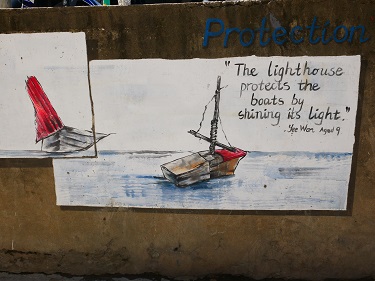 Protection
"The lighthouse
protects the
boats by
shining its light."
Yee Won Aged 9